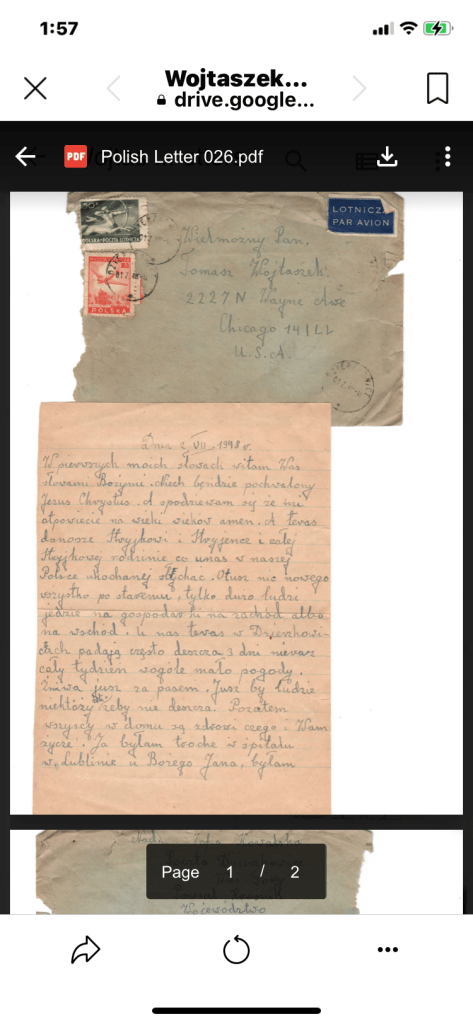 1:57
Wojtaszek...
drive.google...
PDF Polish Letter 026.pdf
LOTNICZA
PAR AVION
POLSKA-POCZTA LOTNICZA
POLSKA
Wielmożny Pan.
Tomasz Wojtaszek
2227 N Wayne Ave
Chicago 14 ILL
U.S.A.
Dnia 2 VII. 1948 r.
W pierwszych moich słowach witam Was
słowami Bożymi. Niech bęndzie pochwalony
Jezus Chrystus. A spodziewam się że mi
otpowiecie na wieki wiekow amen. A teras
donosze Stryjkowi i Stryjence i całej
Stryjkowej rodzinie co unas w naszej
Polsce ukochanej słychac. Otusz nic nowego
wszystko po staremu, tylko duzo ludzi
jedzie na gospodarki na zachód albo
na wschód. U nas teras w
padają często deszcze, 3 dni nieraz
cały tydzień wogóle mało pogody.
Żniwa jusz za pasem. Jusz by ludzie
niektóży żeby nie deszcze. Pozatem
wszyscy w domu są zdrowi czego i Wam
życze. Ja byłam troche w śpitalu
w Lublinie u Bożego Jana, byłam
Zofia Kowalska
Województwo
Page 1 / 2